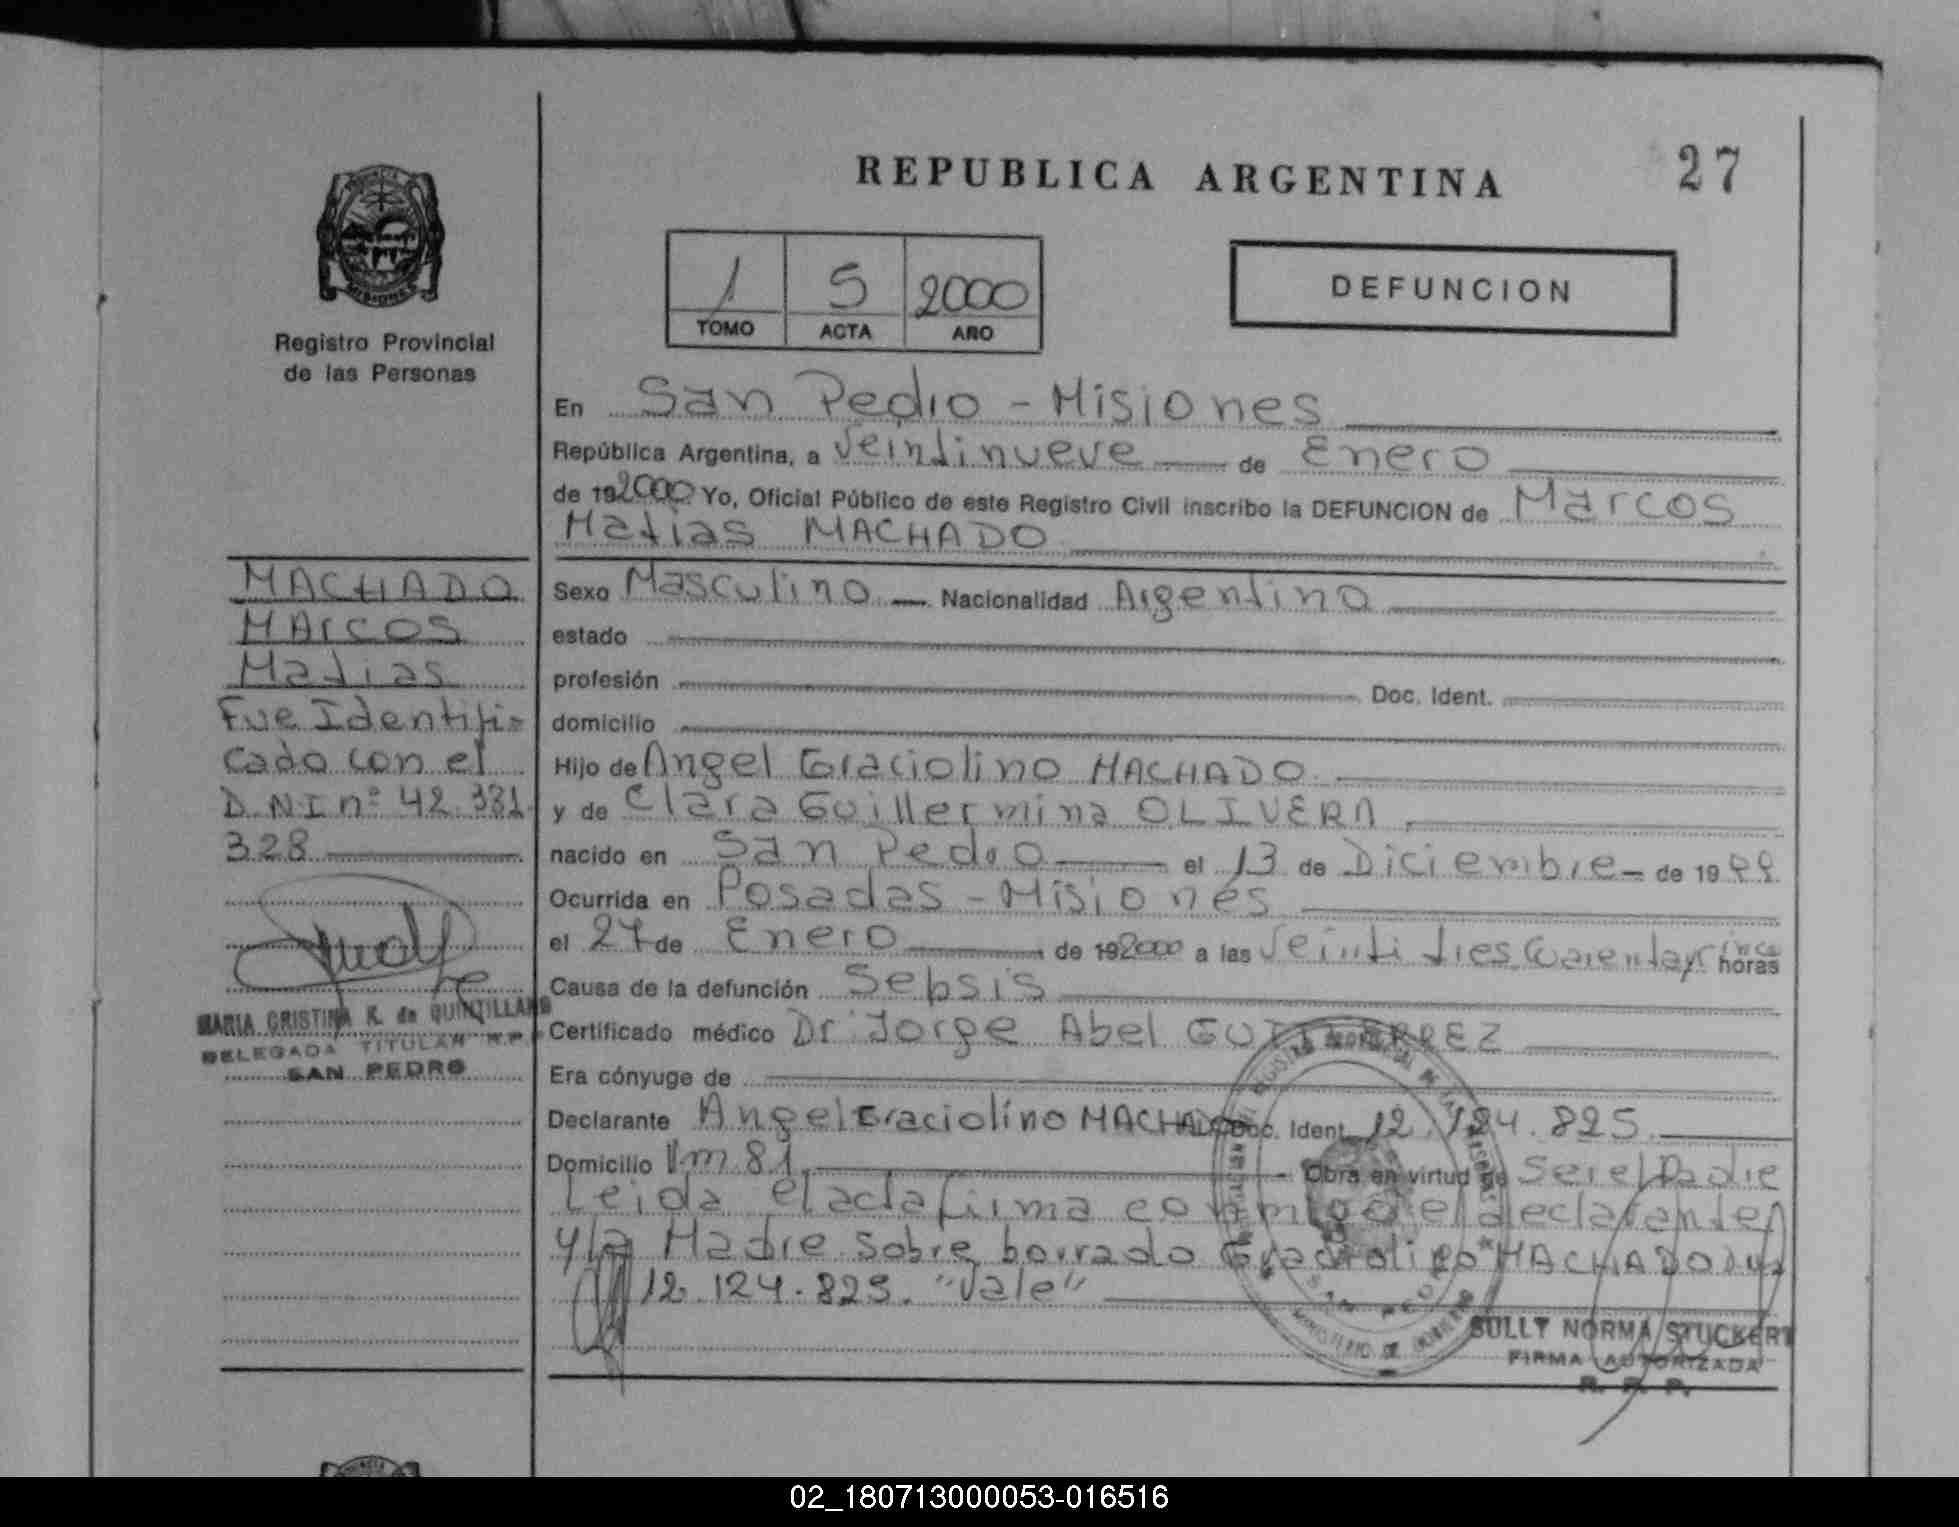 REPUBLICA ARGENTINA
27
MISIONES
Registro Provincial
de las Personas
1 5 2000
TOMO ACTA AÑO
DEFUNCION
En San Pedro - Misiones
República Argentina, a Veintinueve de Enero
de 192000 Yo, Oficial Público de este Registro Civil inscribo la DEFUNCION de Marcos
Matias MACHADO
Sexo Masculino Nacionalidad Argentino
estado
profesión Doc. Ident.
domicilio
Hijo de Angel Graciolino MACHADO
y de Clara Guillermina OLIVERA
nacido en San Pedro el 13 de Diciembre de 1999
Ocurrida en Posadas - Misiones
el 27 de Enero de 192000 a las Veinti tres Cuarentay cinco horas
Causa de la defunción Sebsis
Certificado médico Dr: Jorge Abel GUTIERREZ
Era cónyuge de
Declarante Angel Graciolino MACHADO Doc. Ident. 12.124.825
Domicilio Km 81 Obra en virtud de Ser el Padre
Leida el acta firma conmigo el declarante
y la Madre sobre borrado Graciolino MACHADO
12.124.825. "Vale"
SULLY NORMA STUCKERT
FIRMA AUTORIZADA
R. P. P.
MACHADO
MArcos
Matias
Fue Identifi-
cado con el
D.N.I nº 42.331.
328
MARIA CRISTINA K. de QUINTILLANO
DELEGADA TITULAR R.P.
SAN PEDRO
02_180713000053-016516